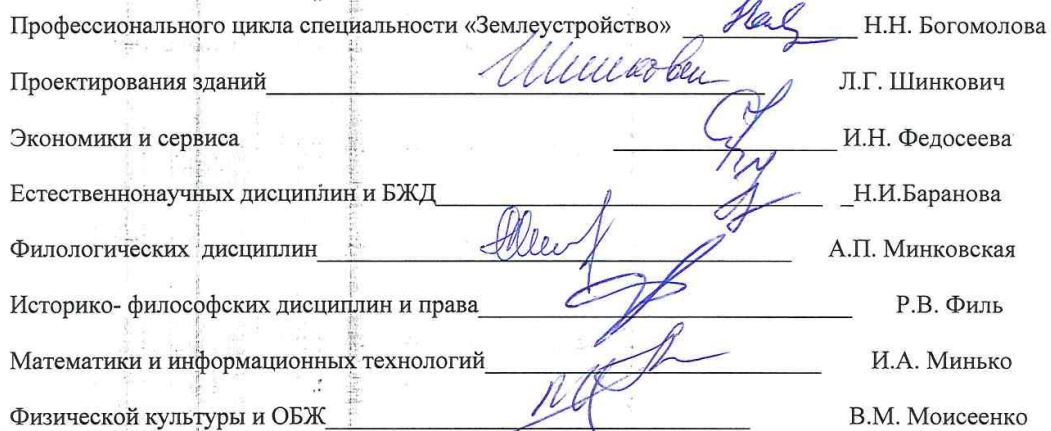 Профессионального цикла специальности «Землеустройство» Н.Н. Богомолова
Проектирования зданий Шинкович Л.Г. Шинкович
Экономики и сервиса И.Н. Федосеева
Естественнонаучных дисциплин и БЖД Н.И.Баранова
Филологических дисциплин А.П. Минковская
Историко- философских дисциплин и права Р.В. Филь
Математики и информационных технологий И.А. Минько
Физической культуры и ОБЖ В.М. Моисеенко